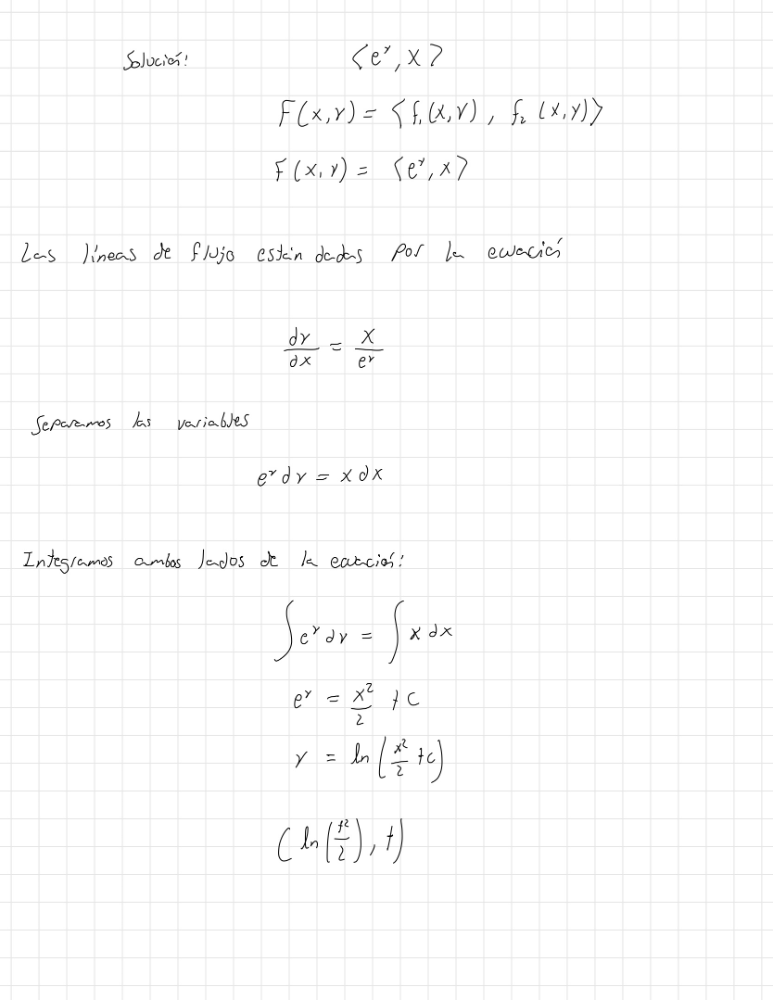 Solución: ⟨e^y, x⟩
F(x,y) = ⟨f₁(x,y), f₂(x,y)⟩
F(x,y) = ⟨e^y, x⟩
Las líneas de flujo están dadas por la ecuación
dy/dx = x/e^y
Separamos las variables
e^y dy = x dx
Integramos ambos lados de la ecación:
∫e^y dy = ∫x dx
e^y = x²/2 + c
y = ln(x²/2 + c)
(ln(t²/2), t)